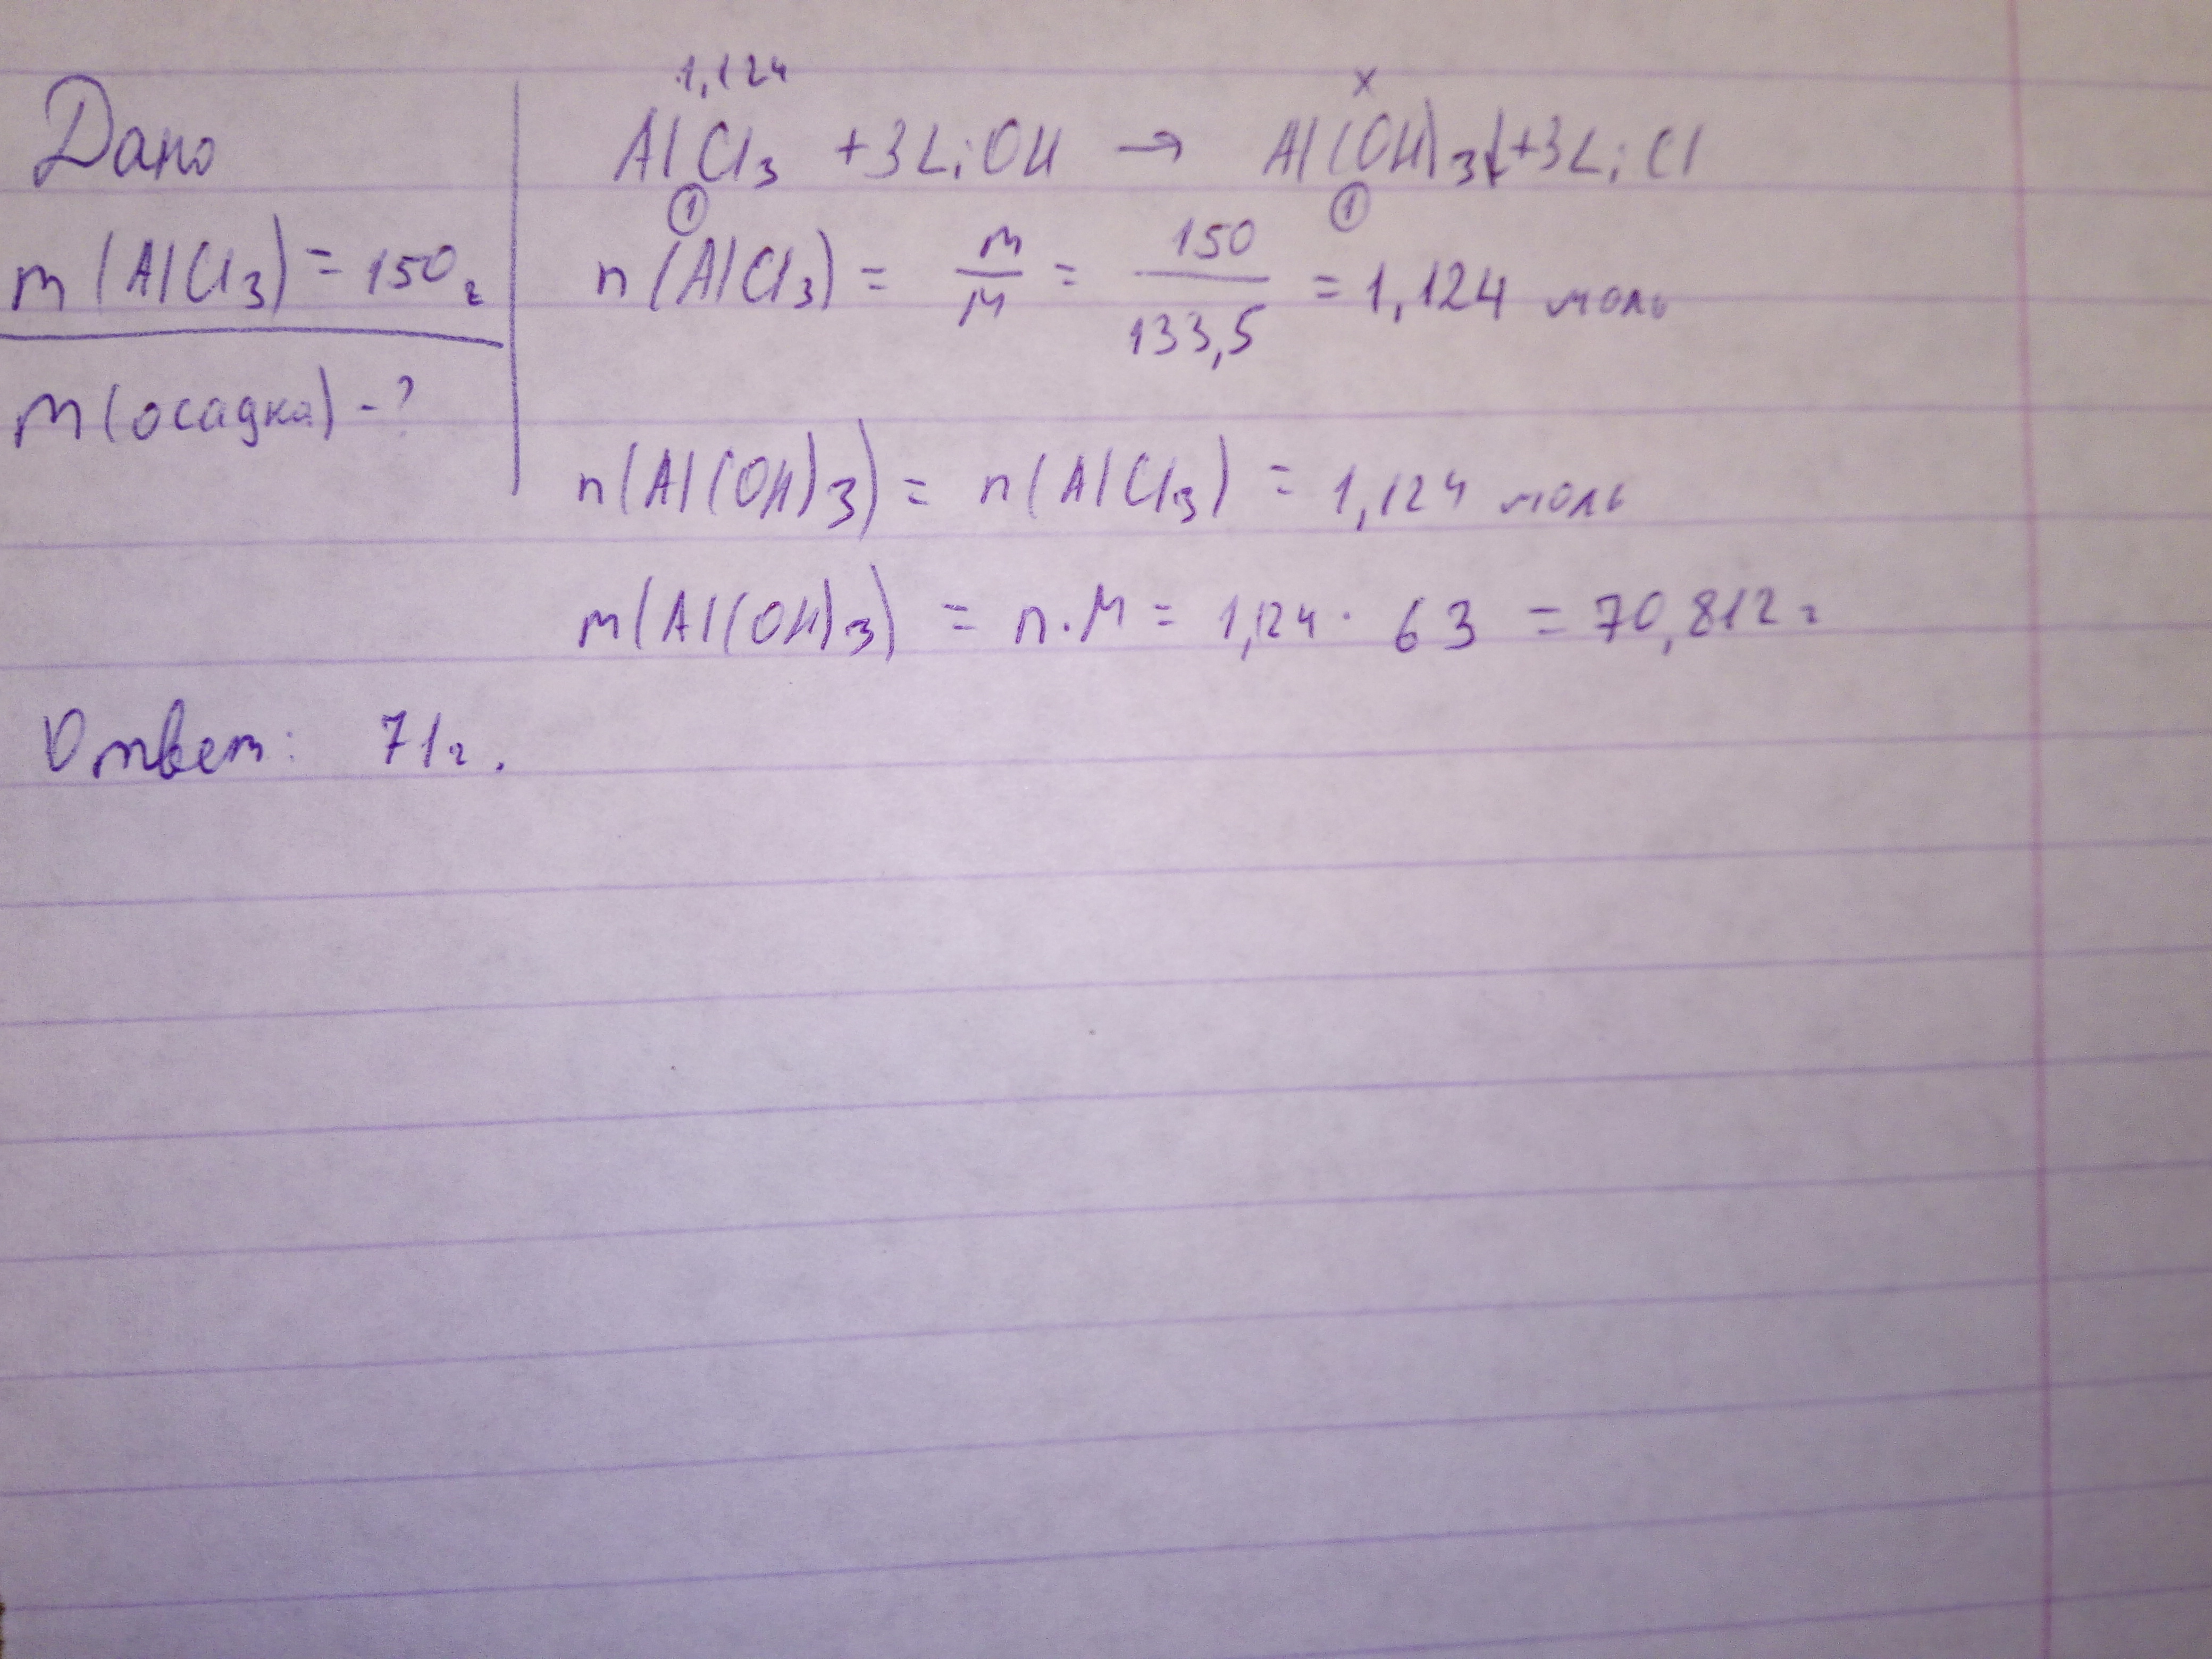 Дано
m(AlCl₃) = 150г
m(осадка) - ?
1,124 x
AlCl₃ + 3LiOH → Al(OH)₃↓ + 3LiCl
① ①
n(AlCl₃) = m/M = 150/133,5 = 1,124 моль
n(Al(OH)₃) = n(AlCl₃) = 1,124 моль
m(Al(OH)₃) = n·M = 1,124 · 63 = 70,812г
Ответ: 71г.